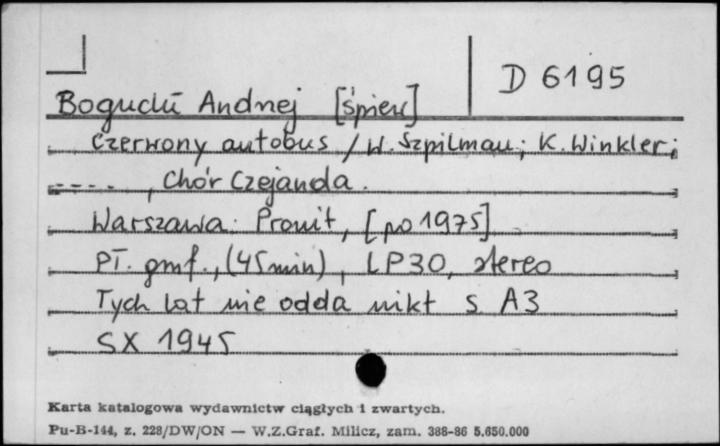 D 6195
Bogucki Andrzej [śpiew]
Czerwony autobus / W. Szpilman; K. Winkler;
---- , Chór Czejanda.
Warszawa: Pronit, [po 1975]
Pł. gmf., (45 min), LP30, stereo
Tych lat nie odda nikt s. A3
SX 1945
Karta katalogowa wydawnictw ciągłych i zwartych.
Pu-B-144, z. 228/DW/ON — W.Z.Graf. Milicz, zam. 388-86 5.650.000